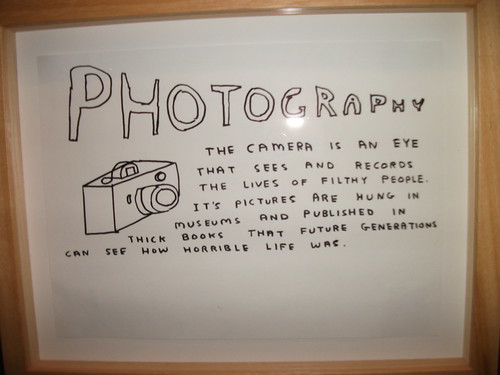 PHOTOGRAPHY
THE CAMERA IS AN EYE
THAT SEES AND RECORDS
THE LIVES OF FILTHY PEOPLE.
IT'S PICTURES ARE HUNG IN
MUSEUMS AND PUBLISHED IN
THICK BOOKS THAT FUTURE GENERATIONS
CAN SEE HOW HORRIBLE LIFE WAS.